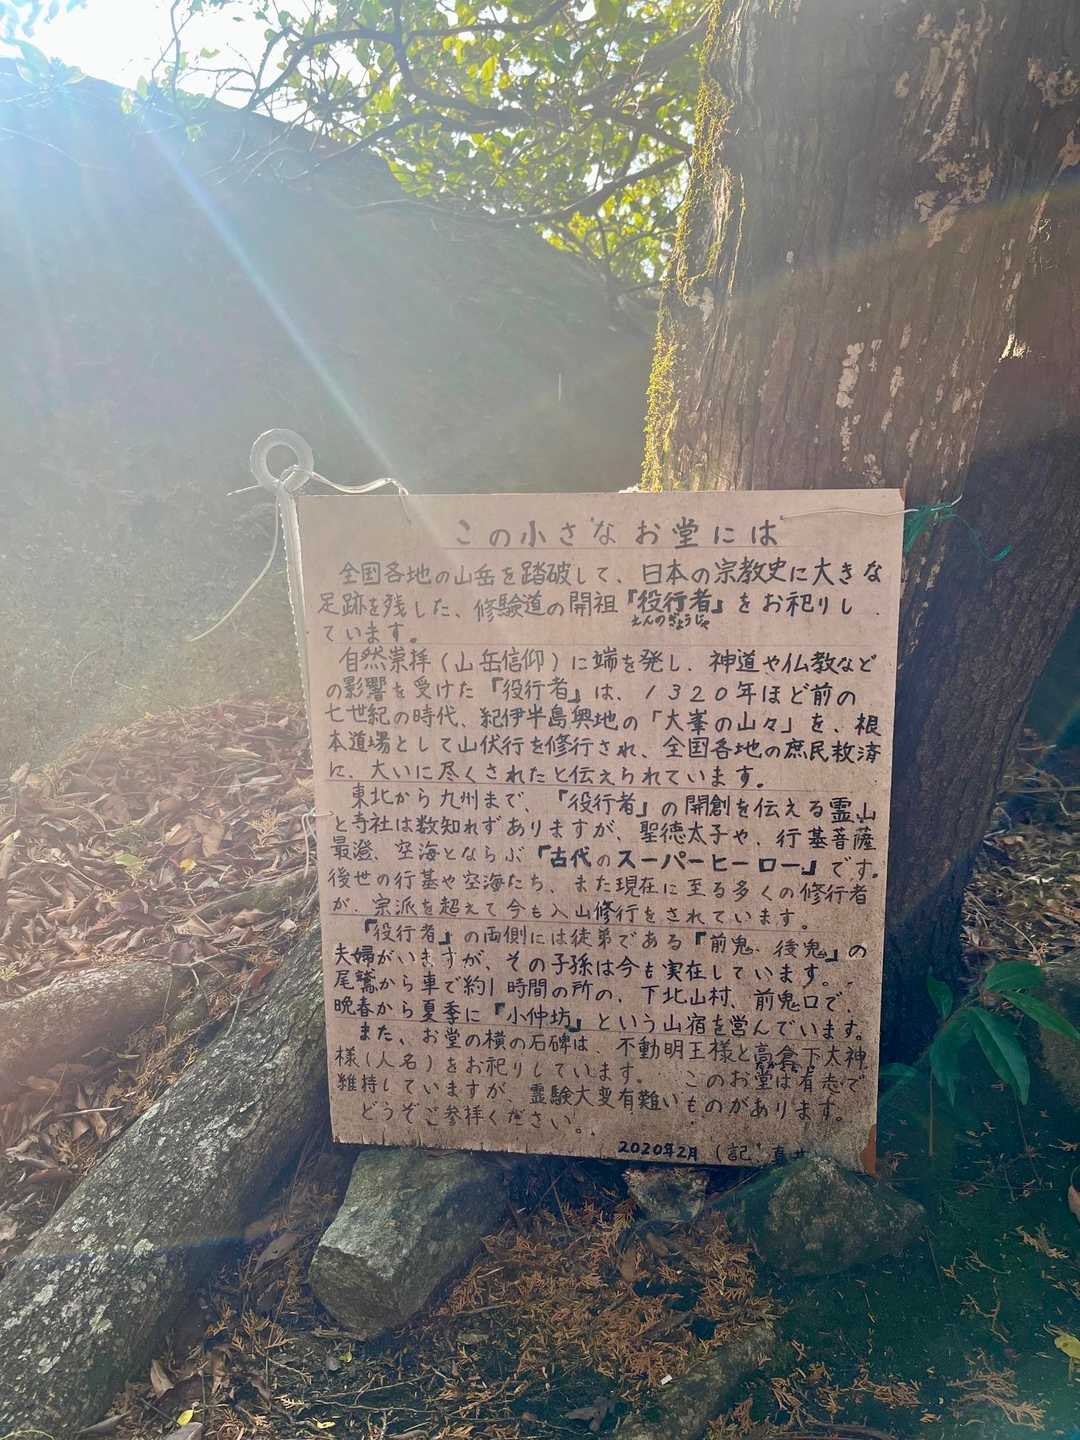 この小さなお堂には
全国各地の山岳を踏破して、日本の宗教史に大きな
足跡を残した、修験道の開祖『役行者』をお祀りし
えんのぎょうじゃ
ています。
自然崇拝(山岳信仰)に端を発し、神道や仏教など
の影響を受けた『役行者』は、1320年ほど前の
七世紀の時代、紀伊半島奥地の「大峯の山々」を、根
本道場として山伏行を修行され、全国各地の庶民救済
に、大いに尽くされたと伝えられています。
東北から九州まで、『役行者』の開創を伝える霊山
と寺社は数知れずありますが、聖徳太子や、行基菩薩
最澄、空海とならぶ『古代のスーパーヒーロー』です。
後世の行基や空海たち、また現在に至る多くの修行者
が、宗派を超えて今も入山修行をされています。
『役行者』の両側には徒弟である『前鬼、後鬼』の
夫婦がいますが、その子孫は今も実在しています。
尾鷲から車で約1時間の所の、下北山村、前鬼口で、
晩春から夏季に『小仲坊』という山宿を営んでいます。
また、お堂の横の石碑は、不動明王様と高倉下大神
様(人名)をお祀りしています。 このお堂は有志で
維持していますが、霊験大変有難いものがあります。
どうぞご参拝ください。
2020年2月 (記